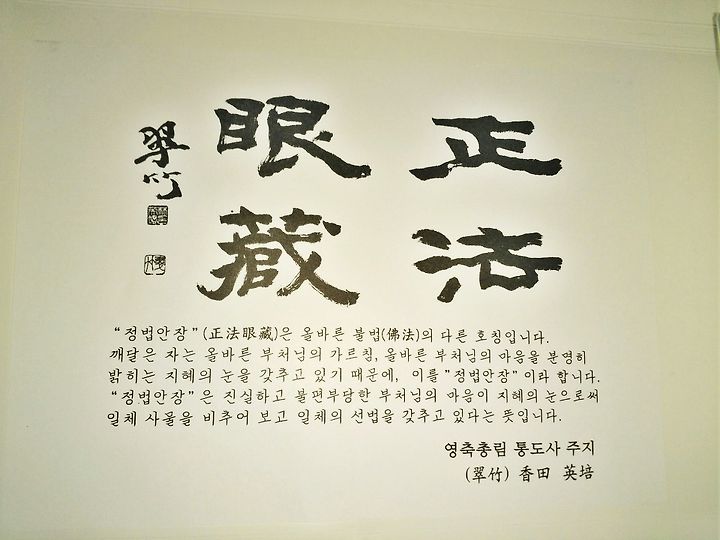 正法
眼藏
翠竹
“정법안장”(正法眼藏)은 올바른 불법(佛法)의 다른 호칭입니다.
깨달은 자는 올바른 부처님의 가르침, 올바른 부처님의 마음을 분명히
밝히는 지혜의 눈을 갖추고 있기 때문에, 이를 ”정법안장” 이라 합니다.
“정법안장” 은 진실하고 불편부당한 부처님의 마음이 지혜의 눈으로써
일체 사물을 비추어 보고 일체의 선법을 갖추고 있다는 뜻입니다.
영축총림 통도사 주지
(翠竹) 香田 英培